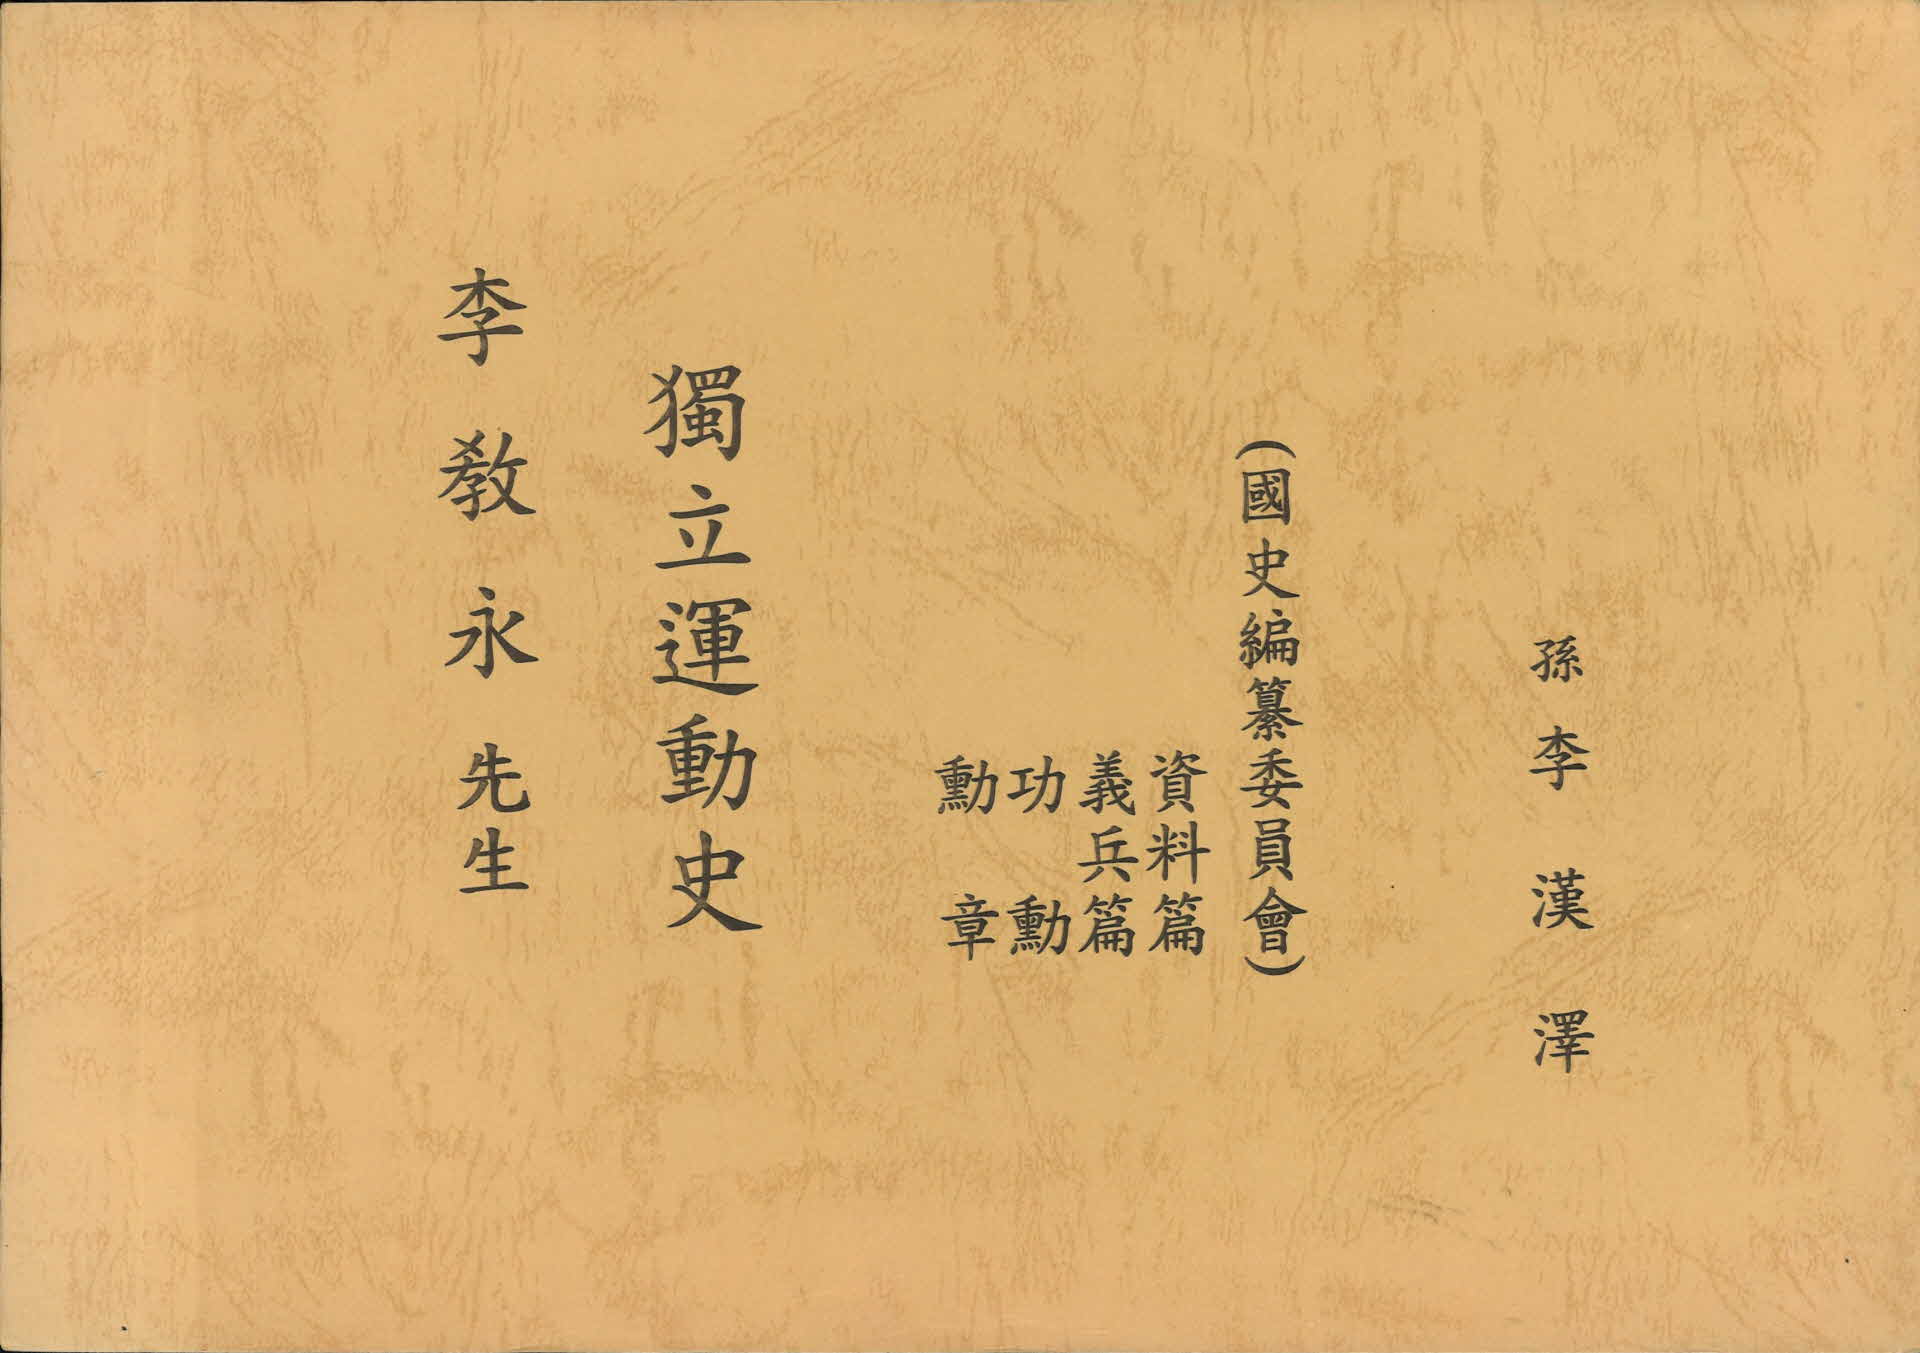 李敎永先生
獨立運動史
勳章
功勳
義兵篇
資料篇
(國史編纂委員會)
孫李漢澤